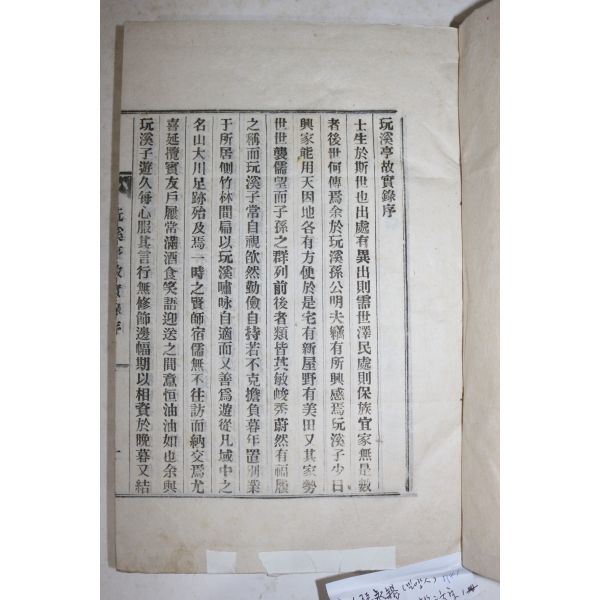 玩溪亭故實錄序
士生於斯世也出處有異出則需世澤民處則保族宜家無是數
者後世何傳焉余於玩溪孫公明夫竊有所興感焉玩溪子少日
興家能用天因地各有方便於是宅有新屋野有美田又其家勢
世世襲儒望而子孫之群列前後者類皆英敏峻秀蔚然有福履
之稱而玩溪子常自視欿然勤儉自持若不克擔負暮年置別業
于所居側竹林間扁以玩溪嘯咏自適而又善爲遊從凡域中之
名山大川足跡殆及焉一時之賢師宿儒無不往訪而納交焉尤
喜延攬賓友戶屨常滿酒食笑語迎送之間意恒油油如也余與
玩溪子遊久每心服其言行無修飾邊幅期以相資於晩暮又結
玩溪亭故實錄序
一